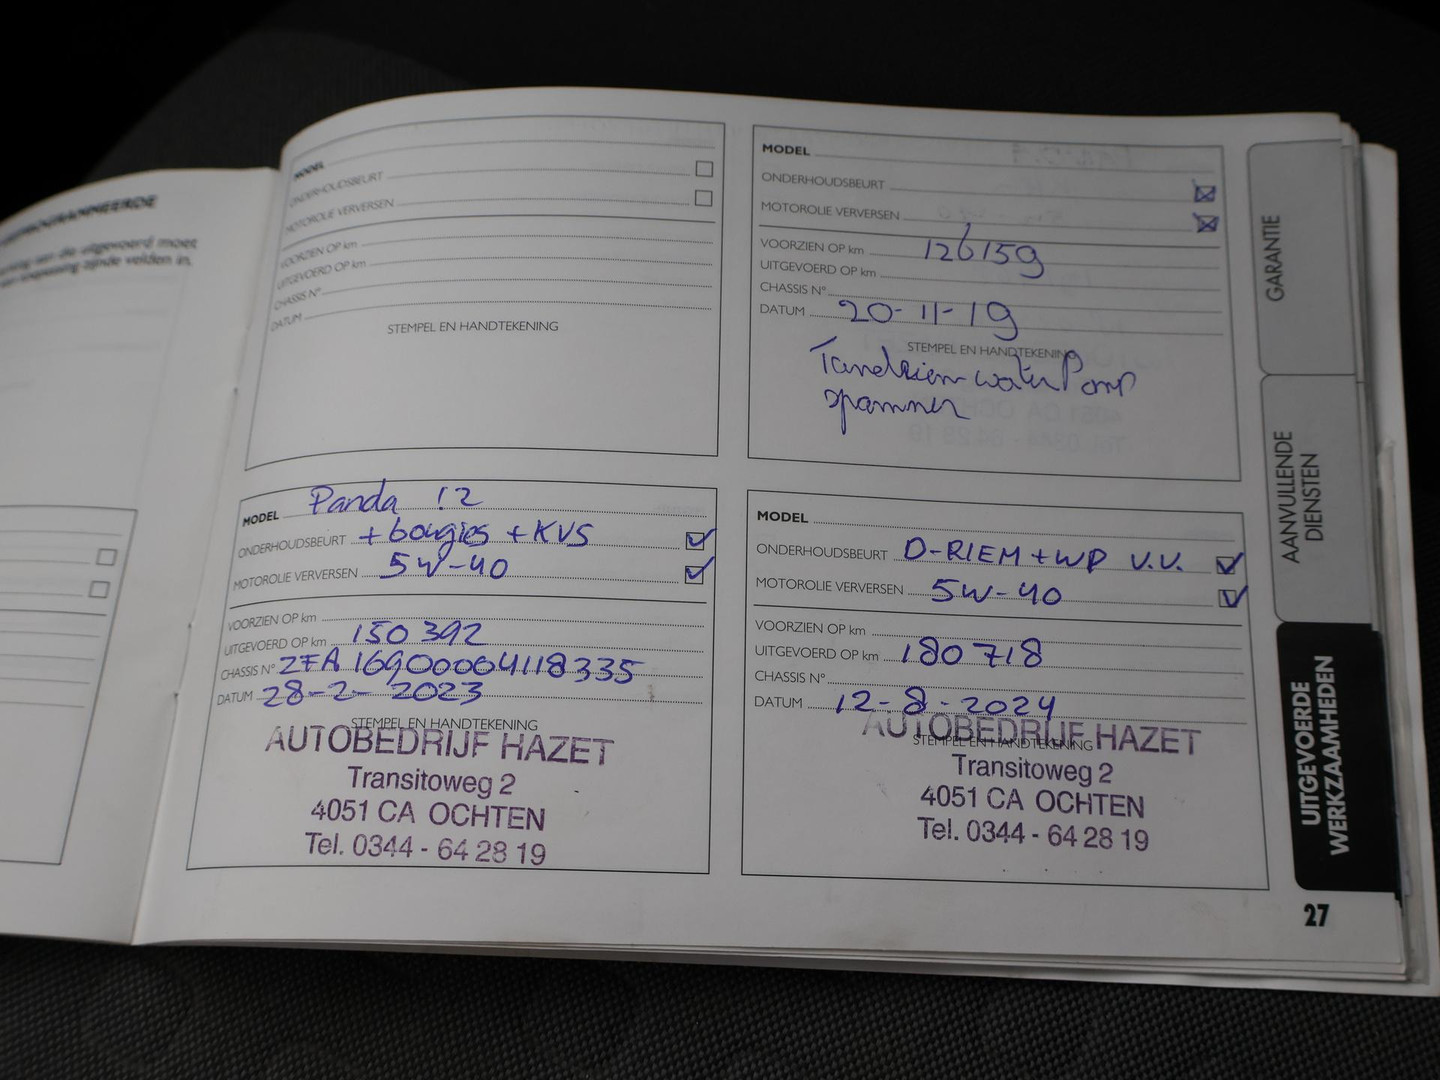 MODEL
ONDERHOUDSBEURT
MOTOROLIE VERVERSEN
VOORZIEN OP km
UITGEVOERD OP km
CHASSIS N°
DATUM
STEMPEL EN HANDTEKENING
MODEL
ONDERHOUDSBEURT
MOTOROLIE VERVERSEN
VOORZIEN OP km 126159
UITGEVOERD OP km
CHASSIS N°
DATUM 20-11-19
STEMPEL EN HANDTEKENING
Tandriem waterPomp
spanner
MODEL Panda 1.2
ONDERHOUDSBEURT + bougies + KVS
MOTOROLIE VERVERSEN 5W-40
VOORZIEN OP km
UITGEVOERD OP km 150 392
CHASSIS N° ZFA 16900004118335
DATUM 28-2-2023
STEMPEL EN HANDTEKENING
AUTOBEDRIJF HAZET
Transitoweg 2
4051 CA OCHTEN
Tel. 0344 - 64 28 19
MODEL
ONDERHOUDSBEURT D-RIEM + WP V.V.
MOTOROLIE VERVERSEN 5W-40
VOORZIEN OP km
UITGEVOERD OP km 180 718
CHASSIS N°
DATUM 12-8-2024
STEMPEL EN HANDTEKENING
AUTOBEDRIJF HAZET
Transitoweg 2
4051 CA OCHTEN
Tel. 0344 - 64 28 19
GARANTIE
AANVULLENDE
DIENSTEN
UITGEVOERDE
WERKZAAMHEDEN
27